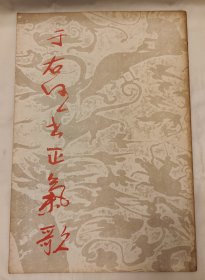 于右任书正氣歌